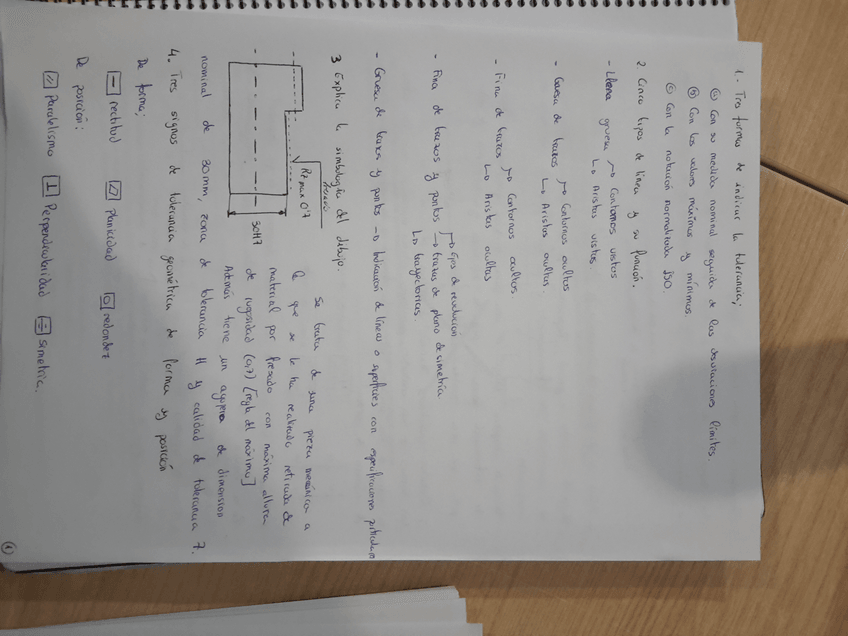 1. Tres formas de indicar la tolerancia;
a) Con su medida nominal seguida de las desviaciones límites
b) Con los valores mínimos y mínimos.
c) Con la notación normalizada ISO.
2. Cinco tipos de línea y su función.
- Llena gruesa → Contornos vistos
↳ Aristas vistas
- Gruesa de trazos → Contornos ocultos
↳ Aristas ocultas.
- Fina de trazos → Contornos ocultos
↳ Aristas ocultas
- Fina de trazos y puntos → Ejes de revolución
→ trazas de plano de simetría
↳ trayectorias.
- Gruesa de trazos y puntos → Indicación de líneas o superficies con especificaciones particulares
3 Explica la simbología del dibujo.
fresado
Rz max 0'7
30H7
Se trata de una pieza mecánica a
la que se le ha realizado retirada de
material por fresado con máxima altura
de rugosidad (0,7) [regla del máximo]
Además tiene un agujero de dimensión
nominal de 30 mm, zona de tolerancia H y calidad de tolerancia 7.
4. Tres signos de tolerancia geométrica de forma y posición
De forma;
— rectitud ▱ planicidad ○ redondez
De posición:
// Paralelismo ⊥ Perpendicularidad ⌯ simetría.
1